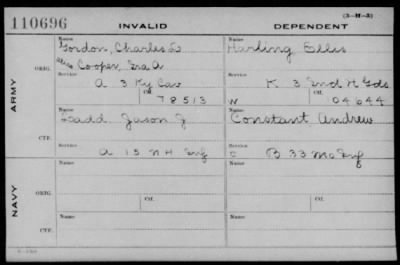 110696 INVALID DEPENDENT (3-H-3)
Name Name
Gordon, Charles L Harling Ellis
alias Cooper, Ira A
ARMY
ORIG.
Service Service
A 3 Ky Cav K 3 Ind H Gds
Ctf. Ctf.
78513 W 04644
Name Name
Ladd Jason J Constant Andrew
CTF.
Service Service
A 15 N H Inf C B 33 Mo Inf
NAVY
ORIG.
Name Ctf. Name Ctf.
Service Service
CTF.
Name Name